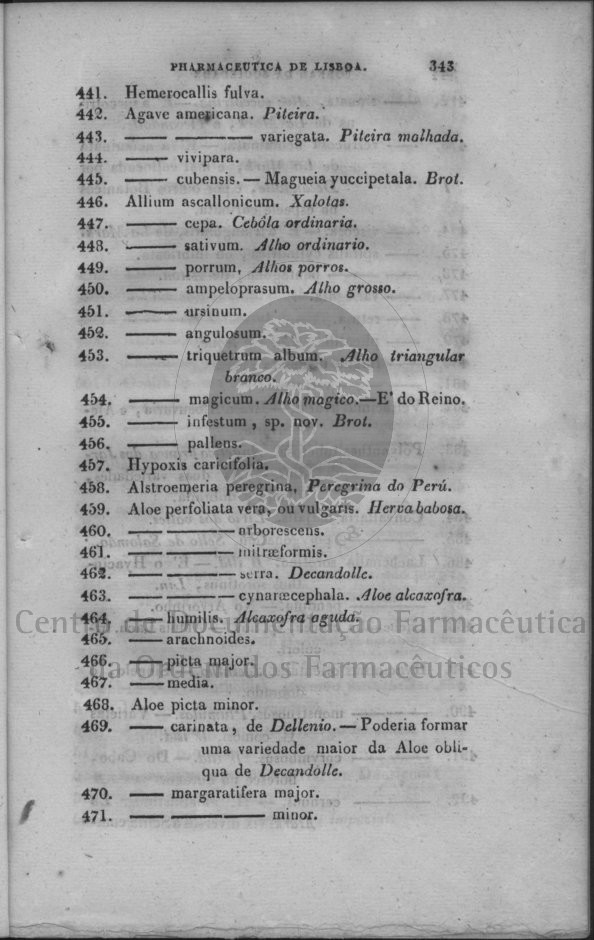 PHARMACEUTICA DE LISBOA. 343
441. Hemerocallis fulva.
442. Agave americana. Piteira.
443. —— —— variegata. Piteira malhada.
444. —— vivipara.
445. —— cubensis. — Magueia yuccipetala. Brot.
446. Allium ascallonicum. Xalotas.
447. —— cepa. Cebôla ordinaria.
448. —— sativum. Alho ordinario.
449. —— porrum, Alhos porros.
450. —— ampeloprasum. Alho grosso.
451. —— ursinum.
452. —— angulosum.
453. —— triquetrum album. Alho triangular
branco.
454. —— magicum. Alho magico.—E' do Reino.
455. —— infestum, sp. nov. Brot.
456. —— pallens.
457. Hypoxis caricifolia.
458. Alstroemeria peregrina, Peregrina do Perú.
459. Aloe perfoliata vera, ou vulgaris. Herva babosa.
460. —— —— arborescens.
461. —— —— mitræformis.
462. —— —— serra. Decandolle.
463. —— —— cynaræcephala. Aloe alcaxofra.
464. —— humilis. Alcaxofra aguda.
465. —— arachnoides.
466. —— picta major.
467. —— media.
468. Aloe picta minor.
469. —— carinata, de Dellenio. — Poderia formar
uma variedade maior da Aloe obli-
qua de Decandolle.
470. —— margaratifera major.
471. —— —— minor.
Centro de Documentação Farmacêutica
da Ordem dos Farmacêuticos